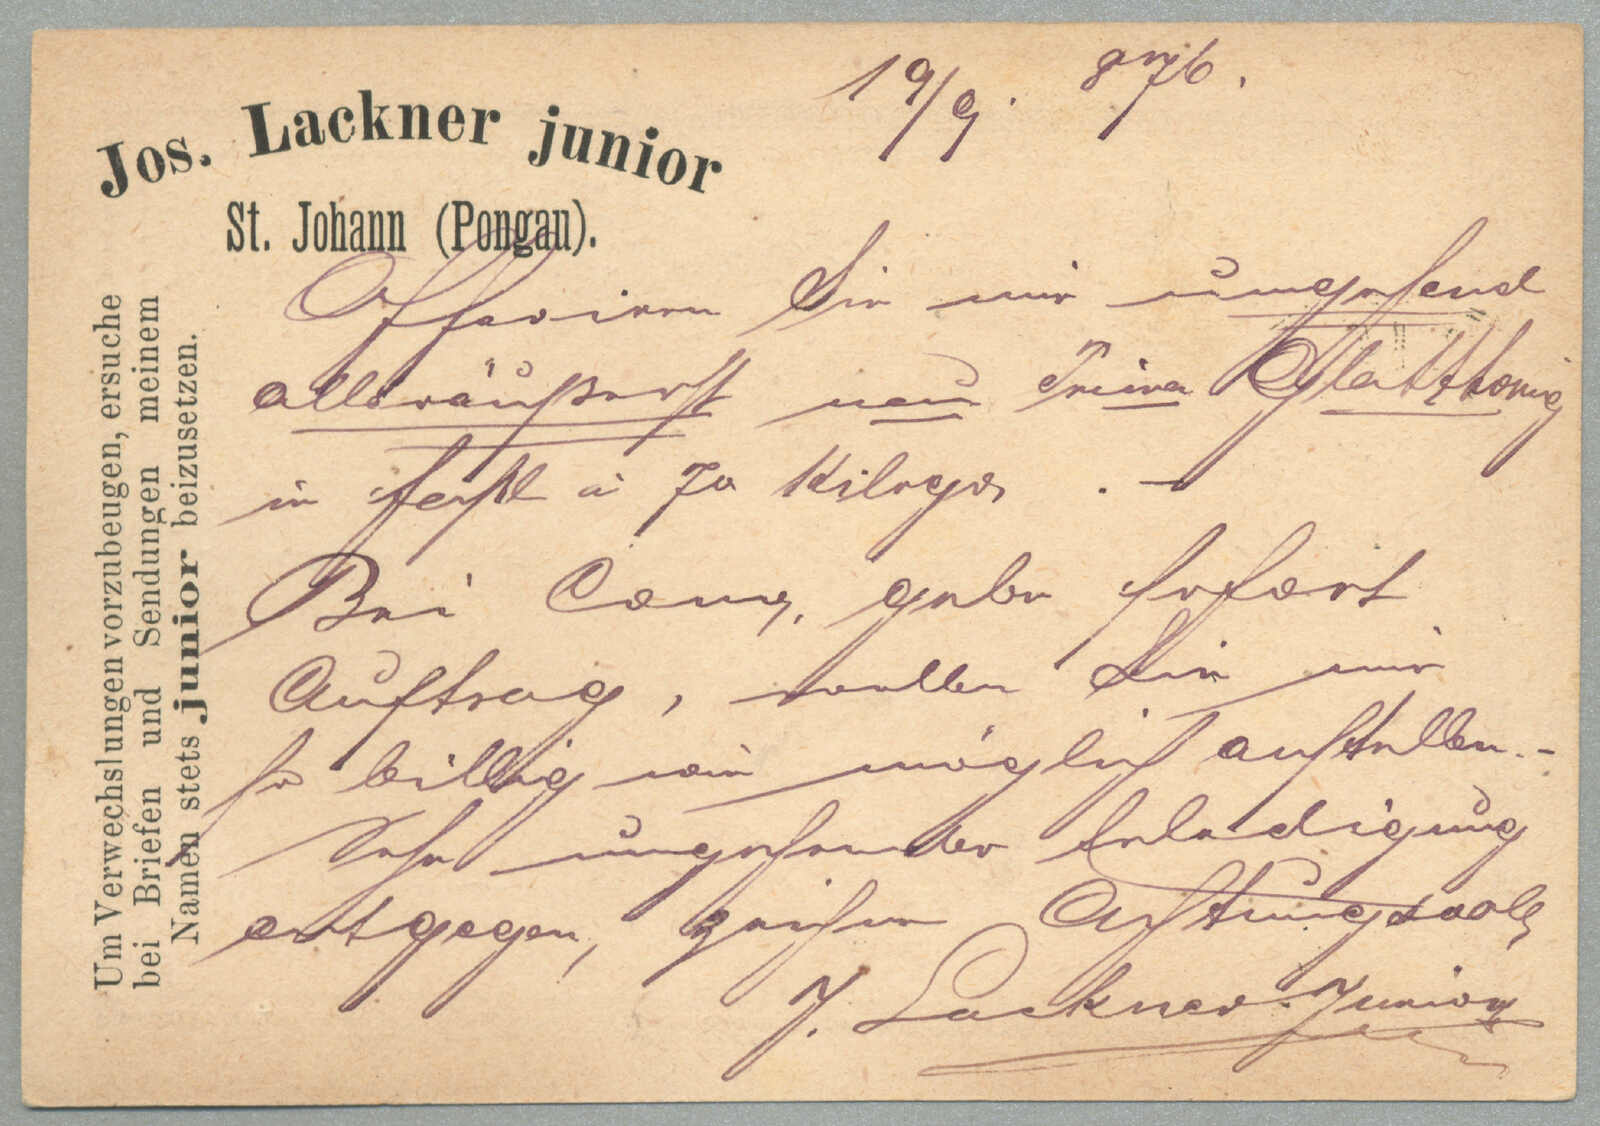 Jos. Lackner junior
St. Johann (Pongau).
Um Verwechslungen vorzubeugen, ersuche
bei Briefen und Sendungen meinem
Namen stets junior beizusetzen.
19/9. 876.
Offeriren Sie mir umgehend
alleräußerst neu Prima
in à 70 Kilogr.
Bei Conv. gebe sofort
Auftrag, wollen Sie mir
so billig wie möglich anstellen.-
Sehe umgehender Erledigung
entgegen, zeichne Achtungsvoll
J. Lackner Junior